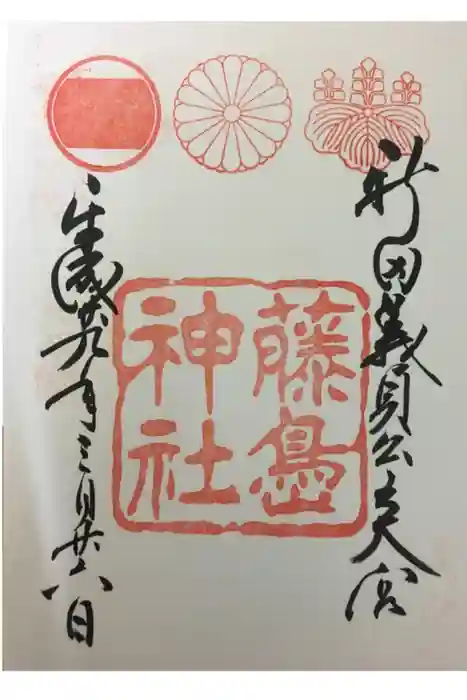 新田義貞公宮
藤島
神社
平成廿九年三月廿六日